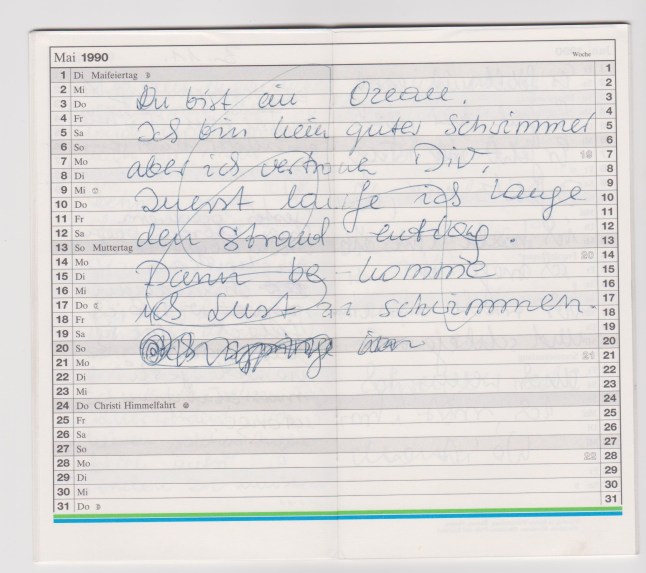 Mai 1990
Woche
1 Di Maifeiertag 1
2 Mi 2
3 Do 3
Du bist ein Ozean.
4 Fr 4
5 Sa 5
Ich bin kein guter Schwimmer
6 So 6
7 Mo 19 7
aber ich vertraue Dir,
8 Di 8
9 Mi 9
10 Do 10
Zuerst laufe ich lange
11 Fr 11
12 Sa 12
den Strand entlang.
13 So Muttertag 13
14 Mo 20 14
15 Di 15
Dann be-komme
16 Mi 16
17 Do 17
ich Lust zu schwimmen.
18 Fr 18
19 Sa 19
20 So 20
21 Mo 21 21
22 Di 22
23 Mi 23
24 Do Christi Himmelfahrt 24
25 Fr 25
26 Sa 26
27 So 27
28 Mo 22 28
29 Di 29
30 Mi 30
31 Do 31